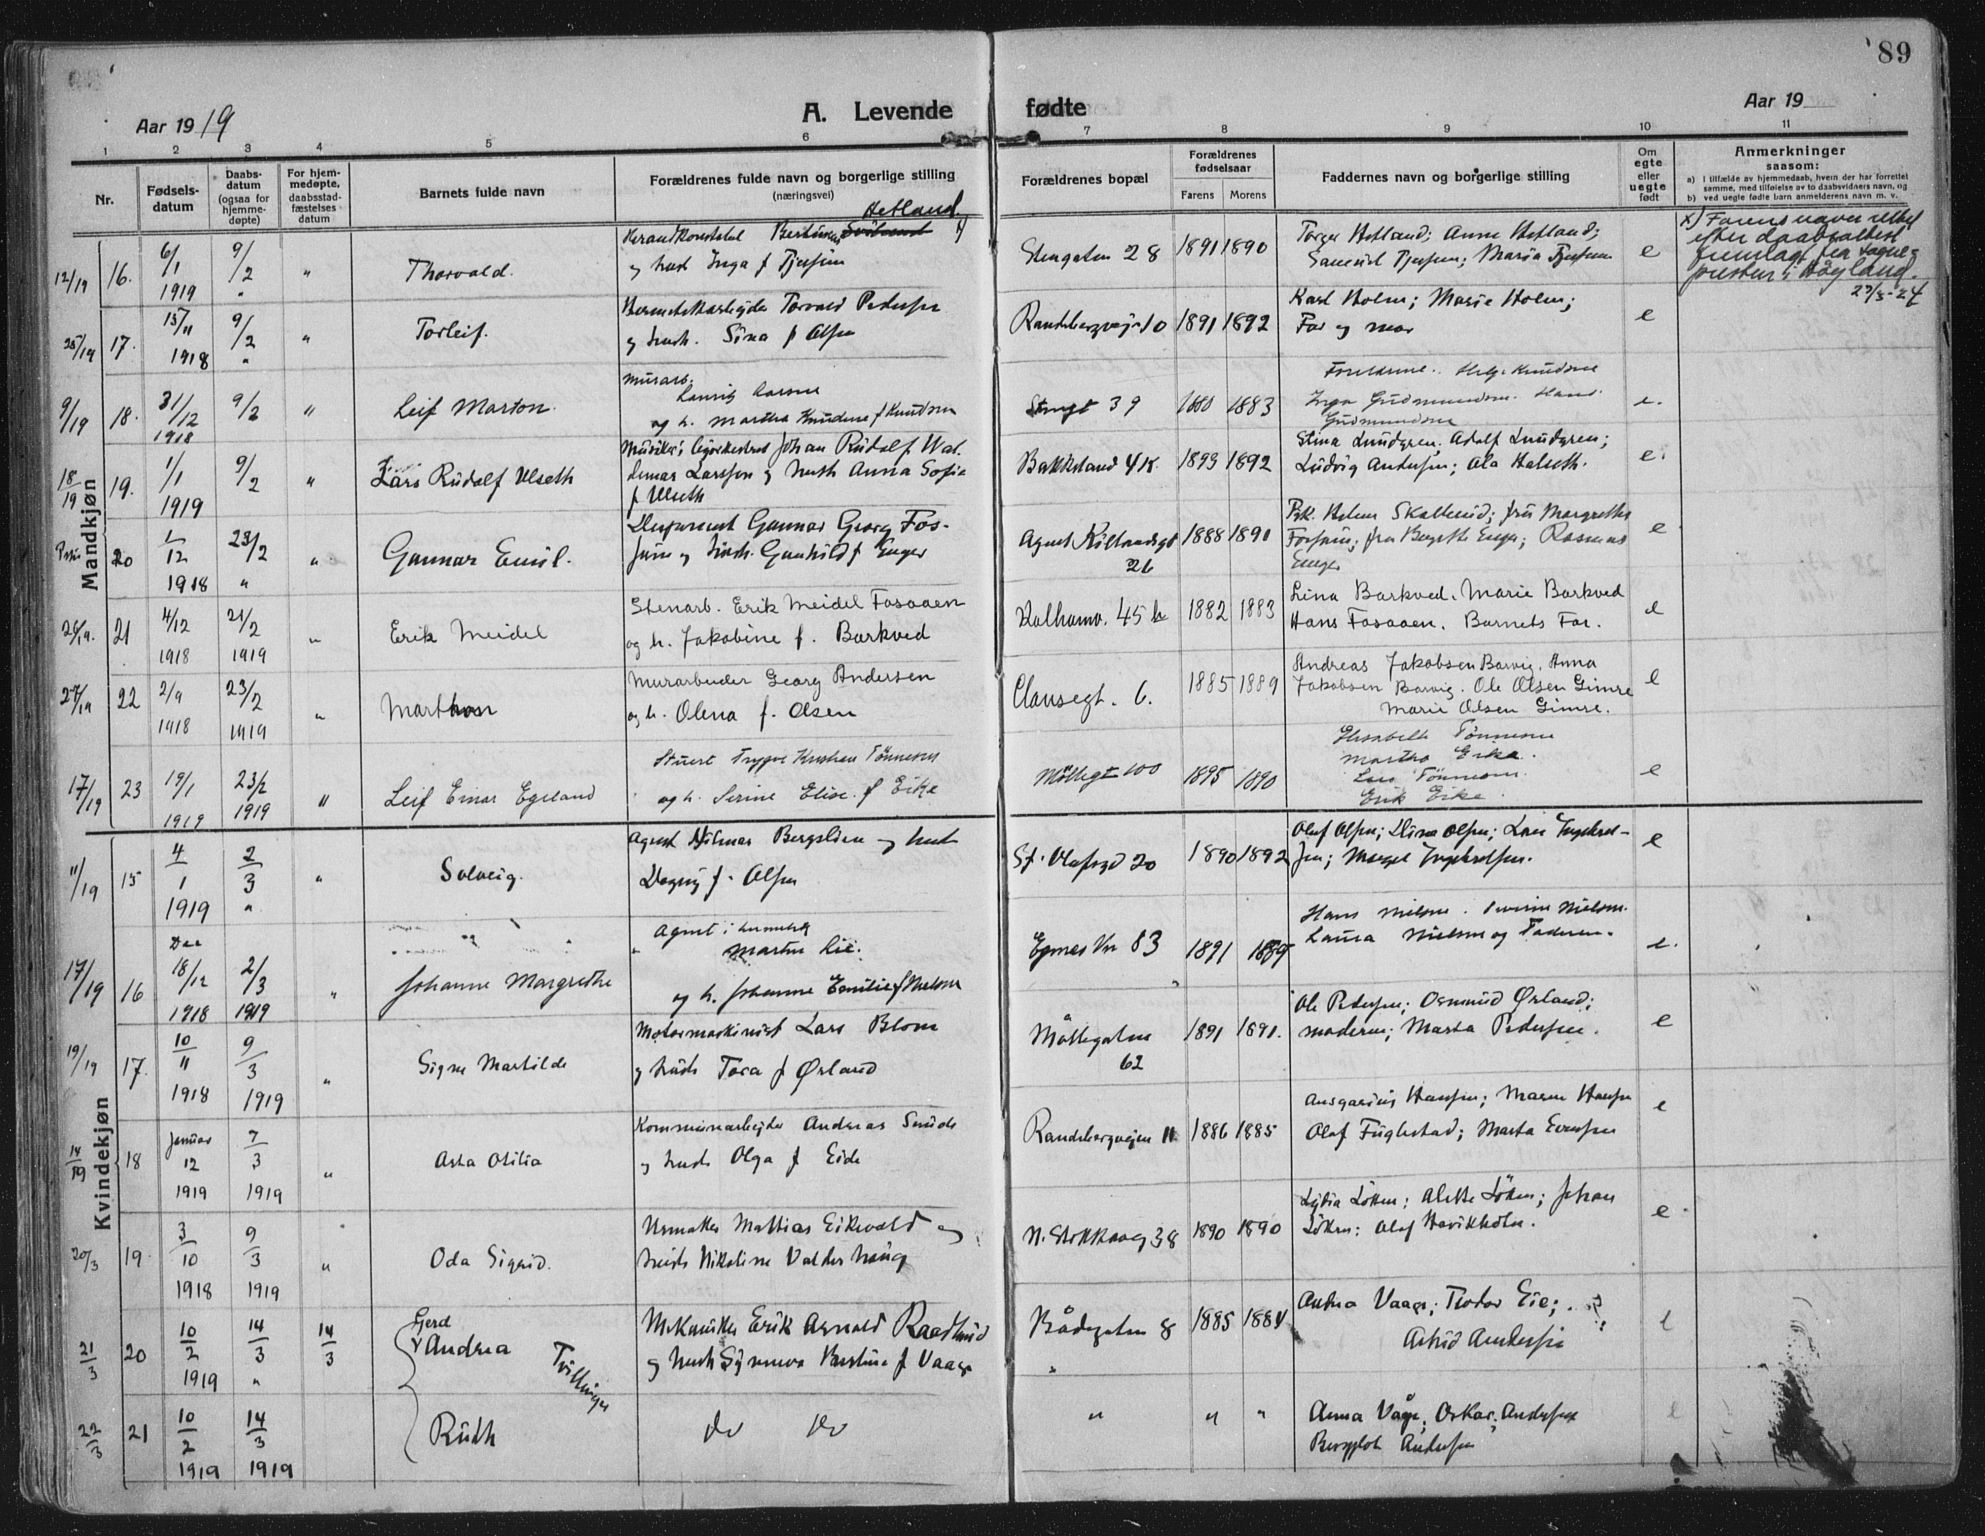 89
Aar 1919
A. Levende fødte
Aar 19
1 2 3 4 5 6 7 8 9 10 11
Nr.
Fødsels-
datum
Daabs-
datum
(ogsaa for
hjemme-
døpte)
For hjem-
medøpte,
daabsstad-
fæstelses
datum
Barnets fulde navn
Forældrenes fulde navn og borgerlige stilling
(næringsvei)
Forældrenes bopæl
Forældrenes
fødselsaar
Farens Morens
Faddernes navn og borgerlige stilling
Om
egte
eller
uegte
født
Anmerkninger
saasom:
a) I tilfælde av hjemmedaab, hvem der har forrettet
samme, med tilføielse av to daabsvidners navn, og
b) ved uegte fødte barn anmelderens navn m. v.
Mandkjøn
Hetland
12/19 16. 6/1 1919 9/2 " " Thorvald.
og hust Inga f Tjersem
Stengaten 28 1891 1890
Torger Hetland; Anna Hetland;
Maria Tjersem
e
x) Farens navn rettet
efter daabsattest
fremlagt fra sogne-
presten i Høyland.
17. 15/11 1918 9/2 " " Torleif.
Hermetikkarbeider Torvald Pedersen
og hust. Sina f Olsen
Randebergveien 10 1891 1892
Karl Holm; Marie Holm;
Far og mor
e
9/19 18. 31/12 1918 9/2 " Leif Marton.
Murarb.
Lauritz Larsen
og h. Martha Knudine f Knudsen
Stengt 39 1883
Forældrene. Helge Knudsen
Inga Gudmundsen. Hans
Gudmundsen
e.
18/19 19. 1/1 1919 9/2 " Lars Rudolf Ulseth
Johan Rudolf Wal-
demar Larsson og hustr Anna Sofie
f Ulseth
Bakkeland 4K. 1893 1892
Stina Lundgren; Adolf Lundgren;
Ludvig Andersen; Ola Halseth.
e
20 1/12 1918 23/2 " " Gunnar Emil.
Disponent Gunnar Georg Fos-
og hust. Gunhild f Enger
Agent Kiellandsgt
26
1888 1890
Rasmus
Enger
e
26/19. 21 4/12 1918 21/2 1919 " Erik Meidel
Stenarb. Erik Meidel Fosaaen
og h. Jakobine f. Barkved
Kalhamv. 45 b 1882 1883
Lina Barkved. Marie Barkved
Hans Fosaaen. Barnets Far.
e
27/19 22 2/9 1918 23/2 1919 " Marthon
Murarbeider Georg Andersen
og h. Olena f. Olsen
Clausegt. 6. 1885 1889
Andreas Jakobsen Barvig. Anna
Jakobsen Barvig. Ole Olsen Gimre
Marie Olsen Gimre.
e
17/19 23 19/1 1919 23/2 1919 " Leif Einar Egeland
Stuert Trygve Kristian Tönnesen
og h. Serine Elise. f Eike
Møllegt 100 1895 1890
Elisabeth Tönnesen
Martha Eike.
Lars Tönnesen.
Erik Eike.
e
Kvindekjøn
11/19 15 4/1 1919 2/3 " " Solveig.
Agent Hilmar Bergslien og hust
Dagny f. Olsen
St. Olafsgd 20 1890 1892
Olaf Olsen; Dina Olsen; Lars Ingebret-
sen; Margit Ingebretsen.
e
17/19 16 Dec 18/12 1918 2/3 1919 " Johanne Margrethe
Agent i hermetik
Martin Lie.
og h. Johanne Emilie f Nielsen
Egnes Vn 83 1891 1889
Hans Nielsen. Severin Nielsen.
Laura Nielsen og Faderen.
e.
19/19 17. 10/11 1918 9/3 1919 " Signe Martilde
Motormaskinist Lars Blom
og hust Tora f Ørland
Møllegaten
62
1891 1891.
Ole Pedersen; Osmund Ørland;
moderen; Marta Pedersen.
e
14/19 18 Januar 12 1919 7/3 1919 " Asta Otilia
Kommunearbeider Andreas
og hust Olga f Eide
Randebergveien 11 1886 1885
Ansgarius Hansen; Maren Hansen
Olaf Fuglestad; Marta Evensen
e
20/3 19. 3/10 1918 9/3 1919 " Oda Sigrid.
Urmaker Mattias Eikevold og
hust Nikoline Valderhaug
N. Stokkavg 38 1890 1890
Lydia Löken; Alette Löken; Johan
Löken; Olaf Havikholm.
e.
21/3 20 10/2 1919 14/3 " 14/3 Gerd
Andrea
Tvillinger
Mekaniker Erik Arnold
f Vaage
Bådegaten 8 1885 1884
Andrea Vaage; Teodor Eie;
Astrid Andersen
e
22/3 21 10/2 1919 14/3 1919 Ruth
do do
" " "
Anna Våge; Oskar Andersen
Bergljot Andersen
e